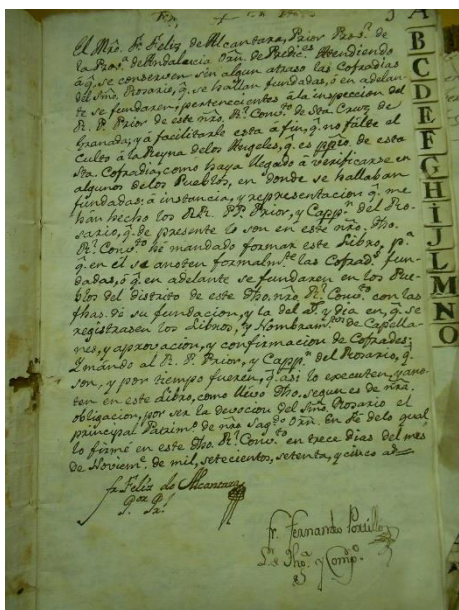 El Mrô. Fr. Feliz de Alcantara, Prior Provl. de
la Provª. de Andalucia Orñ. de Predices. Attendiendo
á q̃. se conserven sin algun atraso las Cofradias
del Smô. Rosario, q̃. se hallan fundadas, ó en adelan-
te se fundaren, pertenecientes á la inspeccion del
R. P. Prior de este nrô. Rl. Convto. de Sta. Cruz de
Granada; y á facilitarle esta á fin, q̃. no falte el
Culto á la Reyna de los Angeles, q̃. es pprio. de esta
Sta. Cofradia, como haya llegado á verificarse en
algunos de los Pueblos, en donde se hallaban
fundadas; á instancia, y representacion q̃. me
han hecho los RR. PP. Prior, y Cappn. del Ro-
sario, q̃. de presente lo son en este nrô. dho.
Rl. Convto. hé mandado formar este Libro, pª.
q̃. en él se anoten formalmte. las Cofrads. fun-
dadas, ó q̃. en adelante se fundaren en los Pue-
blos del distrito de este dho. nrô. Rl. Convto. con las
fhas. de su fundacion, y la del año y dia en q̃. se
registrasen los Libros, y Nombramtos. de Capella-
nes, y aprovacion, y confirmacion de Cofrades;
y mándo al R. P. Prior, y Cappn. del Rosario, q̃.
son, y por tiempo fueren, q̃. así lo executen, y ano-
ten en este Libro, como llevo dho. segun es de nrã.
obligacion, por ser la devocion del Smô. Rosario el
principal Patrimº. de nrã Sagda. Orñ. En fé de lo qual
lo firmé en este dho. Rl. Convto. en trece dias del mes
de Novieme. de mil, setecientos, setenta, y cinco as.
fr. Feliz de Alcantara
Pror. Pral.
Fr. Fernando Portillo
A
B
C
D
E
F
G
H
I
J
L
M
N
O